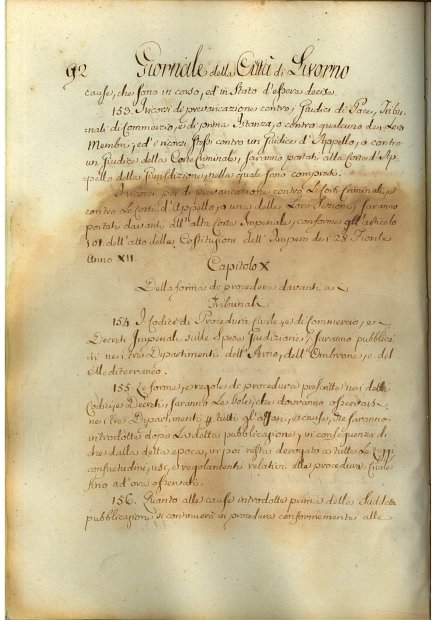 92 Giornale della Città di Livorno
cause, che sono in corso, ed in Stato d'essere decise
153. I ricorsi di prevaricazione contro i Giudici di Pace, Tribu-
nali di Commercio, e di prima Istanza, o contro qualcuno dei Loro
Membri, ed i ricorsi stessi contro un Giudice d'Appello, o contro
un Giudice della Corte Criminale, saranno portati alla Corte d'Ap-
pello della Giurisdizione, nella quale sono compresi.
I ricorsi poi di prevaricazione contro Le Corti Criminali, e
contro Le Corti d'Appello, o una delle Loro Sezioni, saranno
portati davanti all'alta Corte Imperiale, conforme all'articolo
101. dell'atto delle Costituzioni dell'Impero de i 28 Fiorile
Anno XII.
Capitolo X
Della forma di procedere davanti a
Tribunali
154. I Codici di Procedura Civile, e di Commercio, e
Decreti Imperiali sulle Spese Giudiziarie, saranno pubblica-
ti nei tre Dipartimenti dell'Arno, dell'Ombrone, e del
Mediterraneo.
155. Le forme, e regole di procedura prescritte nei detti
Codici, e Decreti, saranno Le sole, che dovranno osservarsi
nei tre Dipartimenti tutti gl'affari, e cause, che saranno
introdotte dopo La detta pubblicazione, in conseguenza di
che dalla detta epoca, in poi resta derogato a tutte Le Leggi
consuetudini, usi, e regolamenti relativi alle procedura Civile
fino ad'ora osservati.
156. Quanto alle cause introdotte prima della Suddetta
pubblicazione si continuerà in procedura conformemente alle